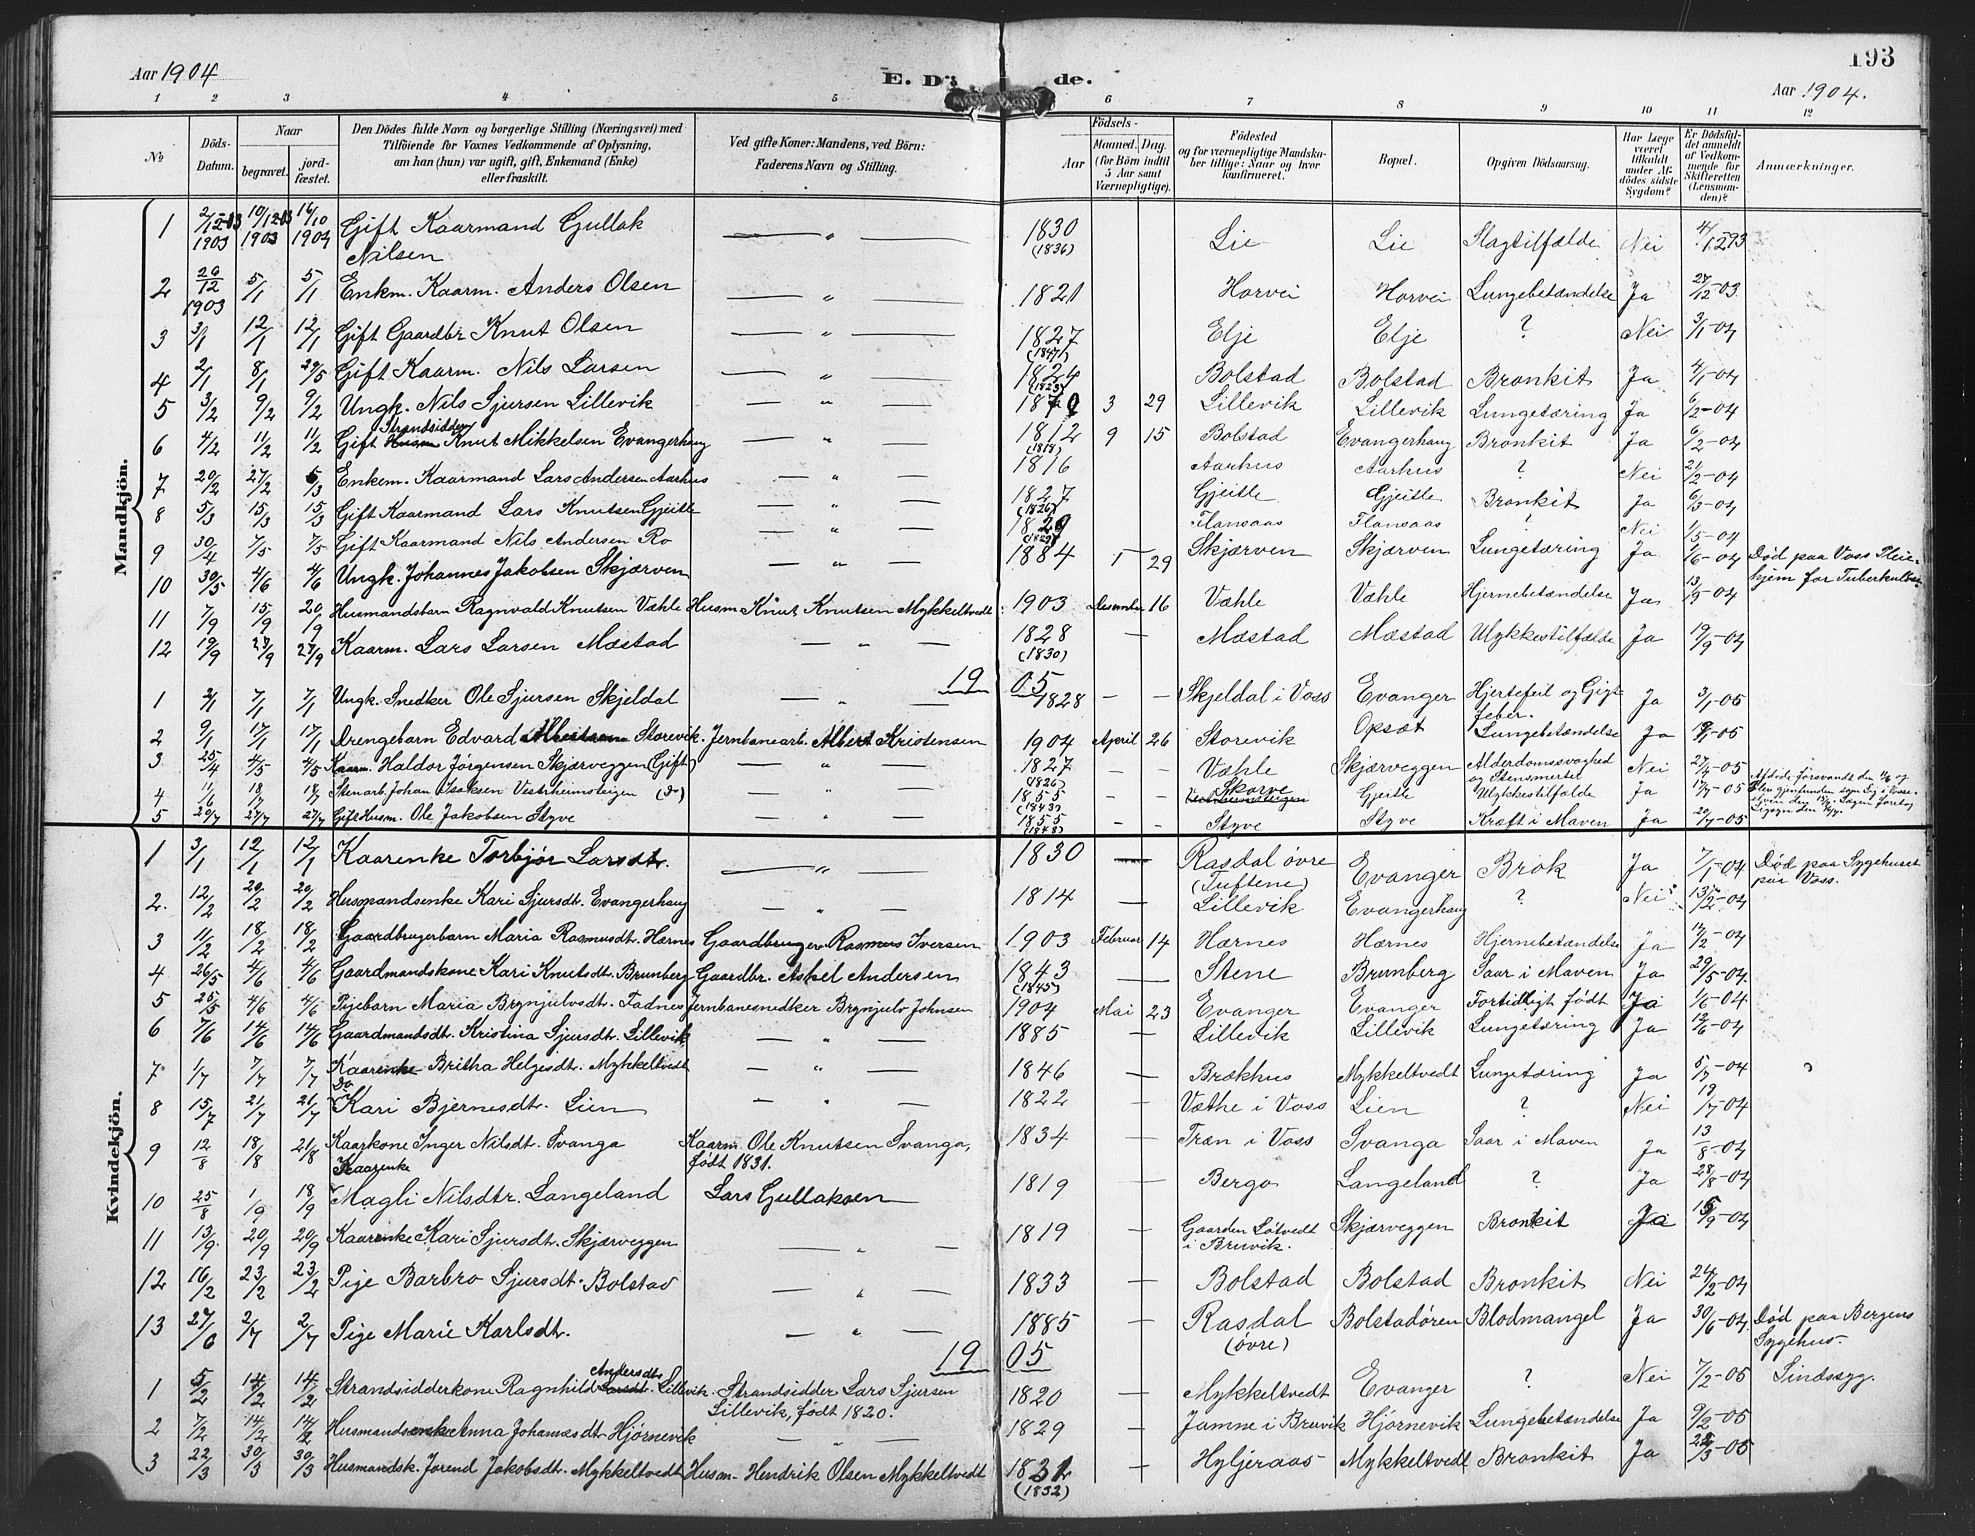 193
Aar 1904
E. Dö de.
Aar 1904.
1 2 3 4 5 6 7 8 9 10 11 12
No
Döds-Datum.
Naar
begravet.
jord-fæstet.
Den Dödes fulde Navn og borgerlige Stilling (Næringsvei) med
Tilföiende for Voxnes Vedkommende af Oplysning,
om han (hun) var ugift, gift, Enkemand (Enke)
eller fraskilt.
Ved gifte Koner: Mandens, ved Börn:
Faderens Navn og Stilling.
Födsels-
Aar
Maaned. Dag.
(for Börn indtil
5 Aar samt
Værnepligtige).
Födested
og for værnepligtige Mandska-
ber tillige: Naar og hvor
konfirmeret.
Bopæl.
Opgiven Dödsaarsag.
Har Læge
været
tilkaldt
under Af-
dödes sidste
Sygdom?
Er Dödsfal-
det anmeldt
af Vedkom-
mende for
Skifteretten
(Lensman-
den)?
Anmærkninger.
Mandkjön.
1 2/12-03 1903 10/12-03 1903 16/10 1904 Gift Kaarmand Gullak Nilsen — „ — 1830 (1836) Lie Lie Slagtilfælde Nei
2 26/12 1903 5/1 5/1 Enkm. Kaarm. Anders Olsen — „ — 1821 Horvei Horvei Lungebetændelse Ja 27/12-03.
3 3/1 12/1 12/1 Gift Gaardbr Knut Olsen — „ — 1827 Elje Elje ? Nei 3/1-04
4 2/1 8/1 29/5 Gift Kaarm. Nils Larsen — „ — 1824 (1823) Bolstad Bolstad Bronkit Ja 4/1-04
5 3/2 9/2 9/2 Ungk. Nils Sjursen Lillevik — „ — 3 29 Lillevik Lillevik Lungetæring Ja 6/2-04
6 4/2 11/2 11/2 Gift Strandsidder Knut Mikkelsen Evangerhaug — „ — 1812 (1818) 9 15 Bolstad Evangerhaug Bronkit Ja 6/2-04
7 20/2 27/2 6/3 Enkem. Kaarmand Lars Andersen Aarhus — „ — 1816 Aarhus Aarhus ? Nei 21/2-04
8 5/3 15/3 15/3 Gift Kaarmand Lars Knutsen Gjeitle — „ — 1827 (1826) Gjeitle Gjeitle Bronkit Ja 6/3-04
9 30/4 7/5 7/5 Gift Kaarmand Nils Andersen Ro — „ — 1829 Flansaas Flansaas ? Nei 1/5-04
10 30/5 4/6 4/6 Ungk. Johannes Jakobsen Skjærven — „ — 1884 1 29 Skjærven Skjærven Lungetæring Ja 1/6-04 Död paa Voss Pleie-
hjem for Tuberkuløse
11 7/9 15/9 20/9 Husmandsbarn Ragnvald Knutsen Væhle Husm Knut Knutsen Mykkeltvedt 1903 Desember 16 Væhle Væhle Hjernebetændelse Ja 13/9-04
12 19/9 27/9 27/9 Kaarm. Lars Larsen Mæstad — „ — 1828 (1830) — Mæstad Mæstad Ulykkestilfælde Ja 19/9-04
1905
1 2/1 7/1 7/1 Ungk. Snedker Ole Sjursen Skjeldal — „ — 1828 — — Skjeldal i Voss Evanger Hjertefeil og Gigt-
feber. Ja 3/1-05
2 9/1 17/1 17/1 Drengebarn Edvard Storevik. Jernbanearb. Albert Kristensen 1904 April 26 Storevik Opsæt Lungebetændelse Ja 9/1-05
3 25/4 4/5 4/5 Kaarm. Haldor Jörgensen Skjærveggen (Gift) — „ — 1827 (1826) — — Væhle Skjærveggen Alderdomssvaghed
og Stensmerter Nei 27/4-05
4 11/6 18/7 18/7 Stenarb. Johan Isaksen Vestrheimsteigen (Do) — „ — 1855 (1843) — — Skorve Gjeitle Ulykkestilfælde Ja 17/7-05
5 20/7 27/7 27/7 Gift Husm. Ole Jakobsen Styve — „ — 1855 (1848) — — Styve Styve Kræft i Maven Ja 20/7-05
Kvindekjön.
1 3/1 12/1 12/1 Kaarenke Torbjör Larsdt. — „ — 1830 — Rasdal øvre
(Tuftene) Evanger Brok Ja 7/1-04 Död paa Sygehuset
paa Voss.
2. 12/2 20/2 20/2 Husmandsenke Kari Sjursdt. Evangerhaug — „ — 1814 — Lillevik Evangerhaug ? Nei 13/2-04
3 11/2 18/2 18/2 Gaardbrugerbarn Maria Rasmusdt. Hærnes Gaardbruger Rasmus Iversen 1903 Februar 14 Hærnes Hærnes Hjernebetændelse Ja 12/2-04
4 26/5 4/6 4/6 Gaardmandskone Kari Knutsdt. Brunberg Gaardbr. Askel Andersen 1843 (1845) — Stene Brunberg Saar i Maven Ja 29/5-04.
5 25/5 4/6 4/6 Pigebarn Maria Brynjulvsdt. Fadnes Jernbanesnedker Brynjulv Johnsen 1904 Mai 23 Evanger Evanger Fortidligt født Ja 1/6-04
6 7/6 14/6 14/6 Gaardmandsdt. Kristina Sjursdt. Lillevik — „ — 1885 — Lillevik Lillevik Lungetæring Ja 12/6-04
7 1/7 7/7 7/7 Kaarenke Britha Helgesdt. Mykkeltvedt — „ — 1846 — Brækhus Mykkeltvedt Lungetæring Ja 5/7-04
8 15/7 21/7 21/7 Do Kari Bjernesdt. Lien — „ — 1822 — Væthe i Voss Lien ? Nei 18/7-04
9 12/8 18/8 21/8 Kaarkone Inger Nilsdt. Svanga Kaarm. Ole Knutsen Svanga,
født 1831. 1834 — Træn i Voss Svanga Saar i Maven Ja 13/8-04
10 25/8 1/9 18/9 Kaarenke Magli Nilsdtr. Langeland Lars Gullaksen 1819 — Bergo Langeland ? Ja 28/8-04
11 13/9. 20/9 20/9 Kaarenke Kari Sjursdt. Skjærveggen — „ — 1819 — Gaarden Løtvedt
i Bruvik. Skjærveggen Bronkit Ja 15/9-04
12 16/2 23/2 23/2 Pige Barbro Sjursdt. Bolstad — „ — 1833 — Bolstad Bolstad Bronkit Nei 24/2-04
13 27/6 2/7 2/7 Pige Marie Karlsdt. — „ — 1885 — Rasdal
(øvre) Bolstadören Blodmangel Ja 30/6-04. Död paa Bergens
Sygehus.
1905
1 5/2 14/2 14/2 Strandsidderkone Ragnhild Andersdt. Lillevik. Strandsidder Lars Sjursen
Lillevik, født 1820. 1820 — Mykkeltvedt Evanger ? Nei 7/2-05 Sindssyg.
2 7/2 14/2 14/2 Husmandsenke Anna Johannesdt Hjörnevik — „ — 1829 — Jamne i Bruvik Hjörnevik Lungebetændelse Ja 9/2-05
3 22/3 30/3 30/3 Husmandsk. Jorend Jakobsdt. Mykkeltvedt Husm. Hendrik Olsen Mykkeltvedt 1831 (1832) — Hyljeraas Mykkeltvedt Bronkit Ja 22/3-05